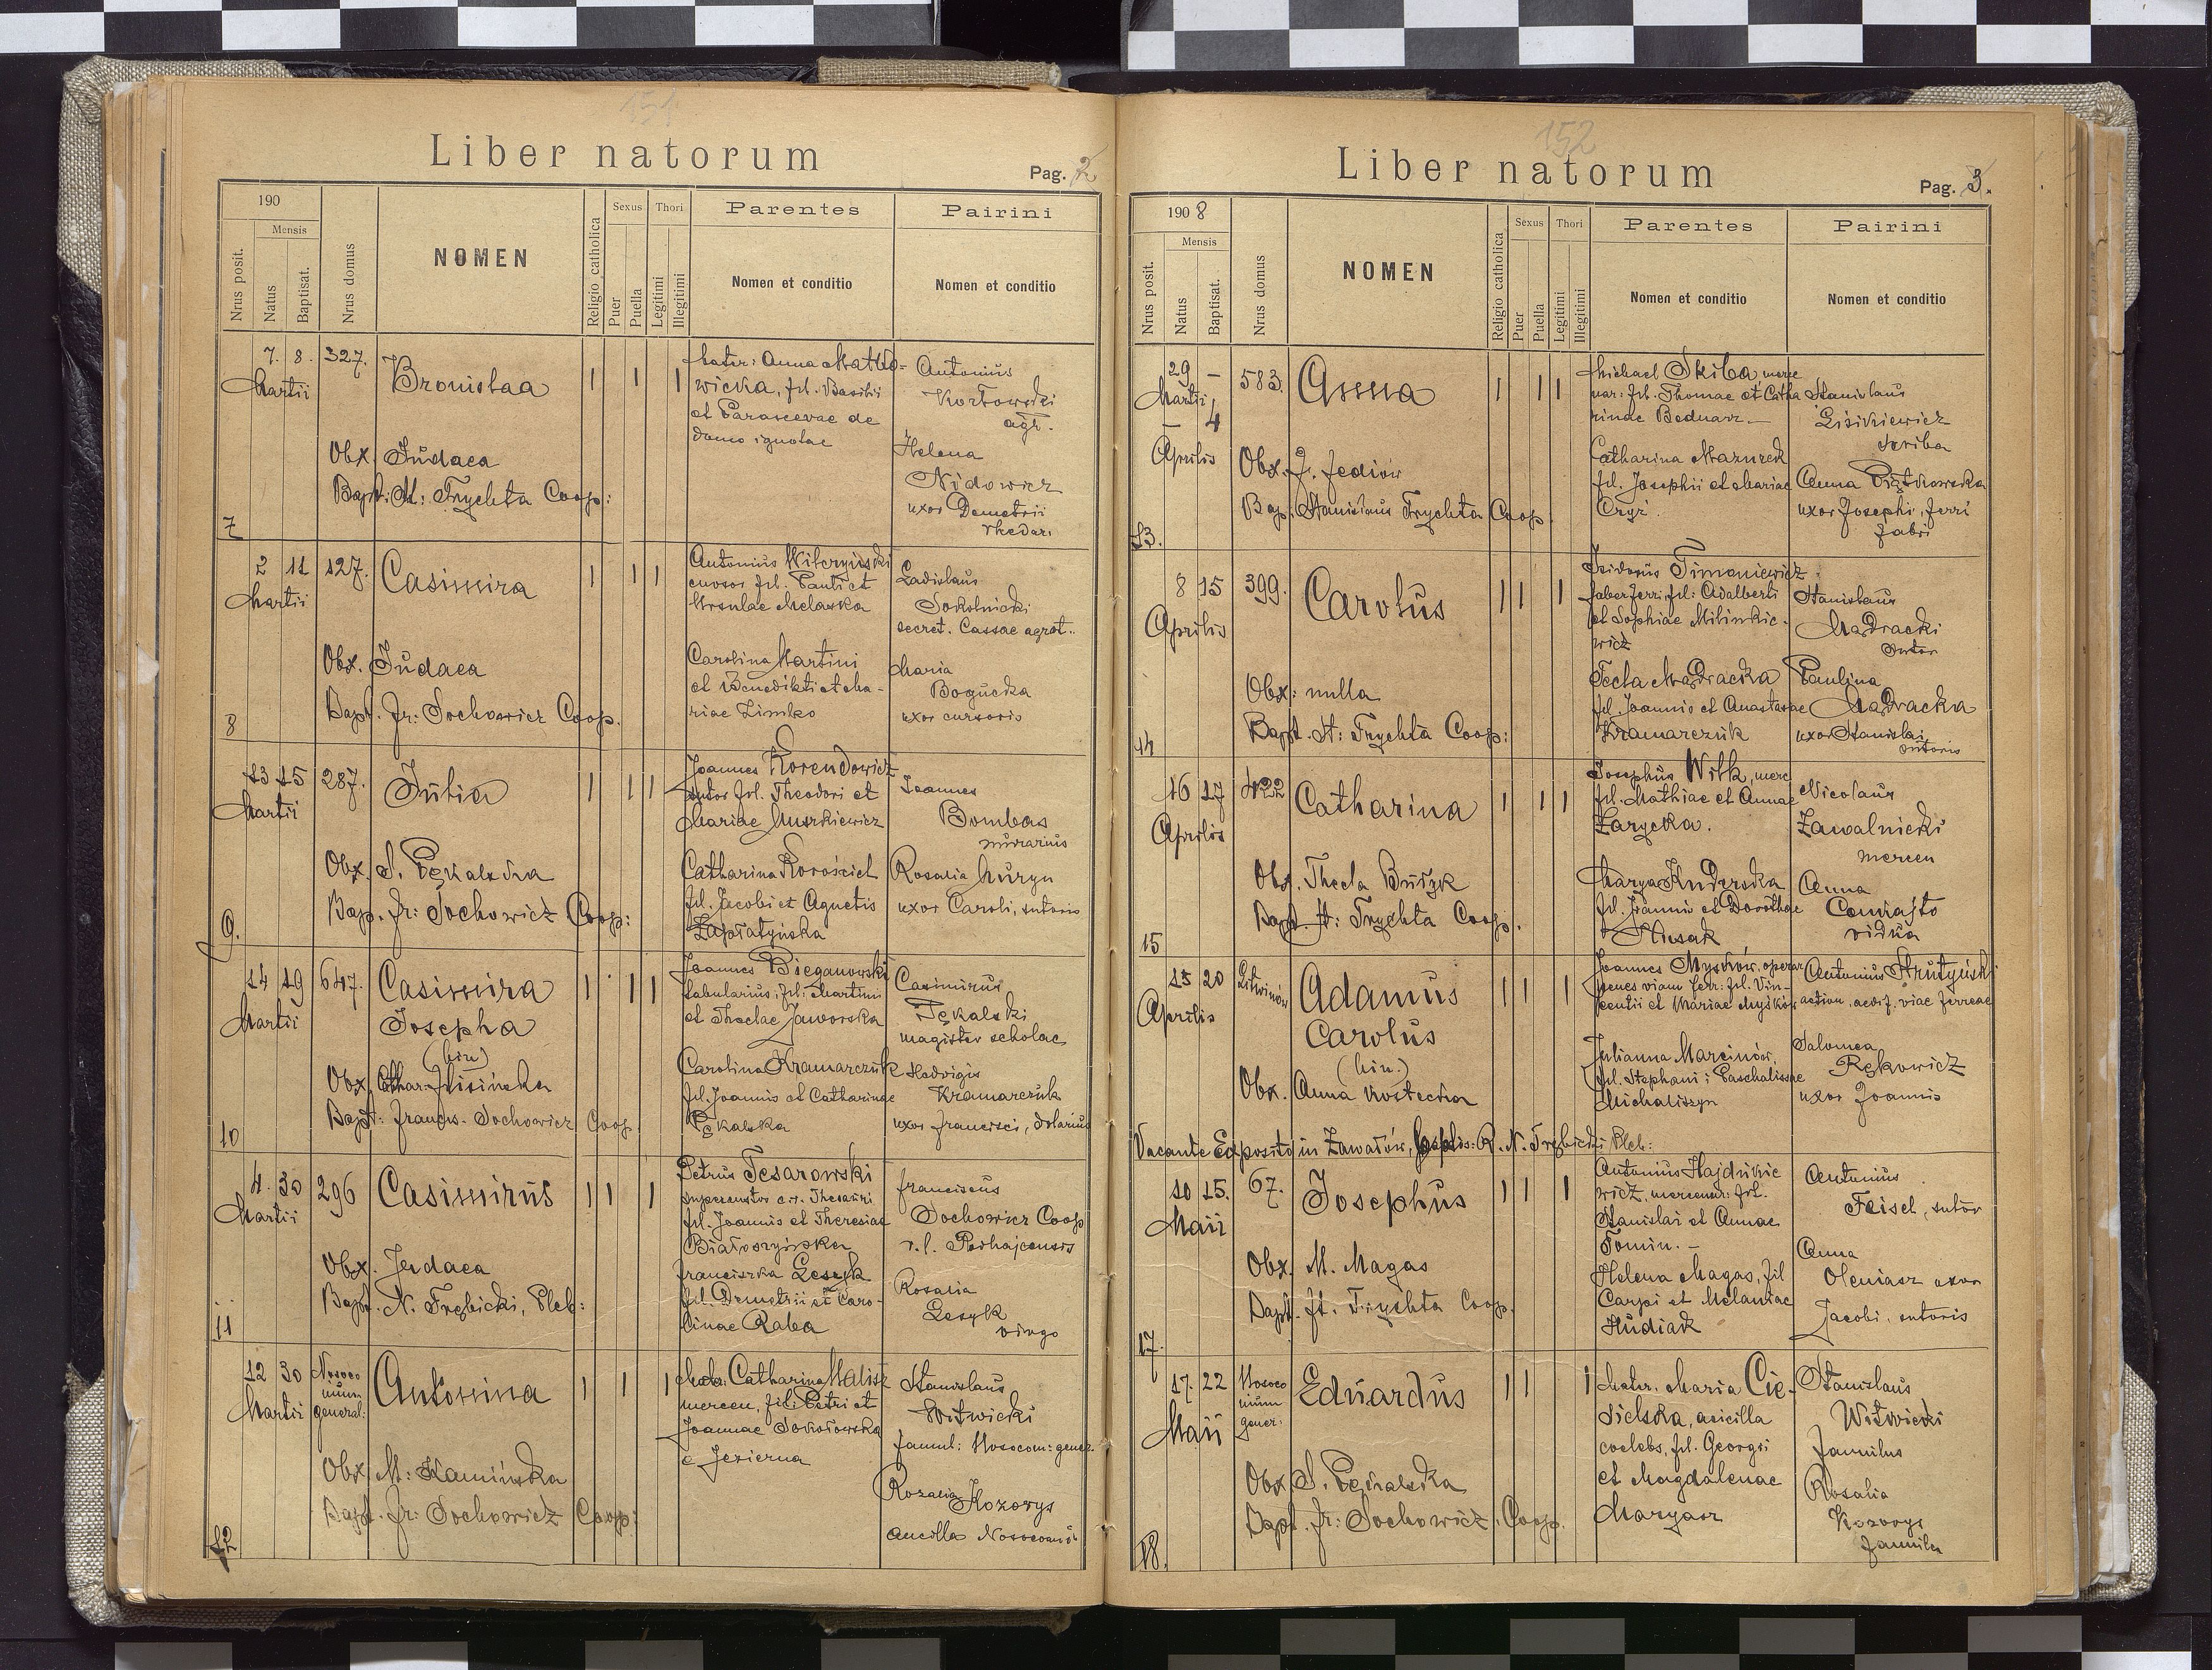 151
Liber natorum
Pag. 2
190
Mensis
Nrus posit.
Natus
Baptisat.
Nrus domus
NOMEN
Religio catholica
Sexus
Puer
Puella
Thori
Legitimi
Illegitimi
Parentes
Nomen et conditio
Pairini
Nomen et conditio
7
7. 8.
Martii
327.
Bronislaa
Obx. Judaea
Bapt: St: Trychta Coop:
wicka, fil. Basilii
et Parascevae de
domo ignotae
Antonius
agr.
Helena
Nidowicz
uxor Demetrii
8
2 11
Martii
127.
Casimira
Obx. Judaea
Bapt. Fr: Sochowicz Coop.
Antonius Wilczyński
cursor fil. Pauli et
Ursulae Melaska
Carolina Martini
et Benedikti et Ma-
riae Zimko
Ladislaus
Sokolnicki
secret. Cassae agrot..
Maria
Bogucka
uxor cursoris
9.
13 15
Martii
287.
Julia
Obx. S. Pękalska
Bap. Fr: Sochowicz Coop:
Joannes Korendowicz
sutor fil. Theodori et
Mariae Muszkiewicz
Catharina Korościel
fil. Jacobi et Agnetis
Łapiatyńska
Joannes
Bombas
murarius
Rosalia Muryn
uxor Caroli, sutoris
10
14 19
Martii
647.
Casimira
Josepha
(bin)
Obx. Cathar. Misińska
Bapt: Francis. Sochowicz Coop.
Joannes Bieganowski
tabularius, fil: Martini
et Theclae Jaworska
Carolina Kramarczuk
fil. Joannis et Catharinae
Pękalska
Casimirus
Pękalski
magister scholae
Hedvigis
Kramarczuk
uxor Francisci, dolarius
11
4. 30
Martii
296
Casimirus
Obx. Judaea
Bapt. N. Trębicki, Pleb:
Petrus Tesarowski
fil. Joannis et Theresiae
Białoszyńska
Franciszka Lesyk
fil. Demetrii et Caro-
linae Raba
Franciscus
Sochowicz Coop
r. l. Podhajcensis
Rosalia
Lesyk
virgo
12
12 30
Martii
Nosoco
mium
general:
Antonina
Obx. M: Kamińska
Bapt. Fr: Sochowicz Coop:
Mater: Catharina Malisz
mercen. fil. Petri et
Joannae Sokołowska
e Jezierna
Stanislaus
Witwicki
famul: Nosocom: gener.
Rozalia Kozorys
ancilla Nosocomii
152
Liber natorum
Pag. 3.
1908
Mensis
Nrus posit.
Natus
Baptisat.
Nrus domus
NOMEN
Religio catholica
Sexus
Puer
Puella
Thori
Legitimi
Illegitimi
Parentes
Nomen et conditio
Pairini
Nomen et conditio
13.
29 –
Martii
– 4
Aprilis
583.
Anna
Obx. J. Fediów
Bap. Stanislaus Trychta Coop.
Michael Skiba merce
nar: fil. Thomae et Catha
rinae Bednarz –
Catharina Mazurek
fil. Josephi et Mariae
Cryż.
Stanislaus
Lisikiewicz
scriba
Anna Piątkowska
uxor Josephi, ferri
fabri
14
8 15
Aprilis
399.
Carolus
Obx: nulla
Bapt. St: Trychta Coop:
Isidorus Timoniewicz
faber ferri, fil: Adalberti
et Sophiae Milinkie-
wicz
Tecla Mądracka
fil. Joannis et Anastasiae
Kramarczuk
Stanislaus
Mądracki
sutor
Paulina
Mądracka
uxor Stanislai,
sutoris
15
16 17
Aprilis
422
Catharina
Obx. Thecla Buszk
Bapt. St: Trychta Coop.
Josephus Wilk, merc
fil. Mathiae et Annae
Zarycka.
Marya Kuderska
fil. Joannis et Dorothae
Husak
Nicolaus
Zawalnicki
mercen
Anna
vidua
15 20
Aprilis
Litwinów
Adamus
Carolus
(bin.)
Obx. Anna Kostecka
Joannes Myśków, operar
penes viam ferr: fil. Vin-
centii et Mariae Myśków
Julianna Marcinów,
fil. Stephani i Paschalissae
Michaliszyn
Antonius Strutyński
action. aedif. viae ferreae
Salomea
Rękowicz
uxor Joannis
Vacante Exposito in Zawałów, baptis: R. N. Trębicki Pleb:
17.
10 15.
Maii
67.
Josephus
Obx. M. Magas
Bapt. St. Trychta Coop.
Antonius Hajdukie
wicz, mercenar: fil.
Stanislai et Annae
Tomin. –
Helena Magas, fil
Carpi et Melaniae
Hudiak
Antonius
Feisel, sutor
Anna
Oleniasz uxor
Jacobi, sutoris
18.
17. 22
Maii
Nosoco
mium
gener:
Eduardus
Obx. S. Pękalska
Bapt. Fr: Sochowicz, Coop.
Mater. Maria Cie-
sielska, ancilla
coelebs, fil. Georgii
et Magdalenae
Maryasz
Stanislaus
Witwicki
famulus
Rosalia
Kozorys
famula